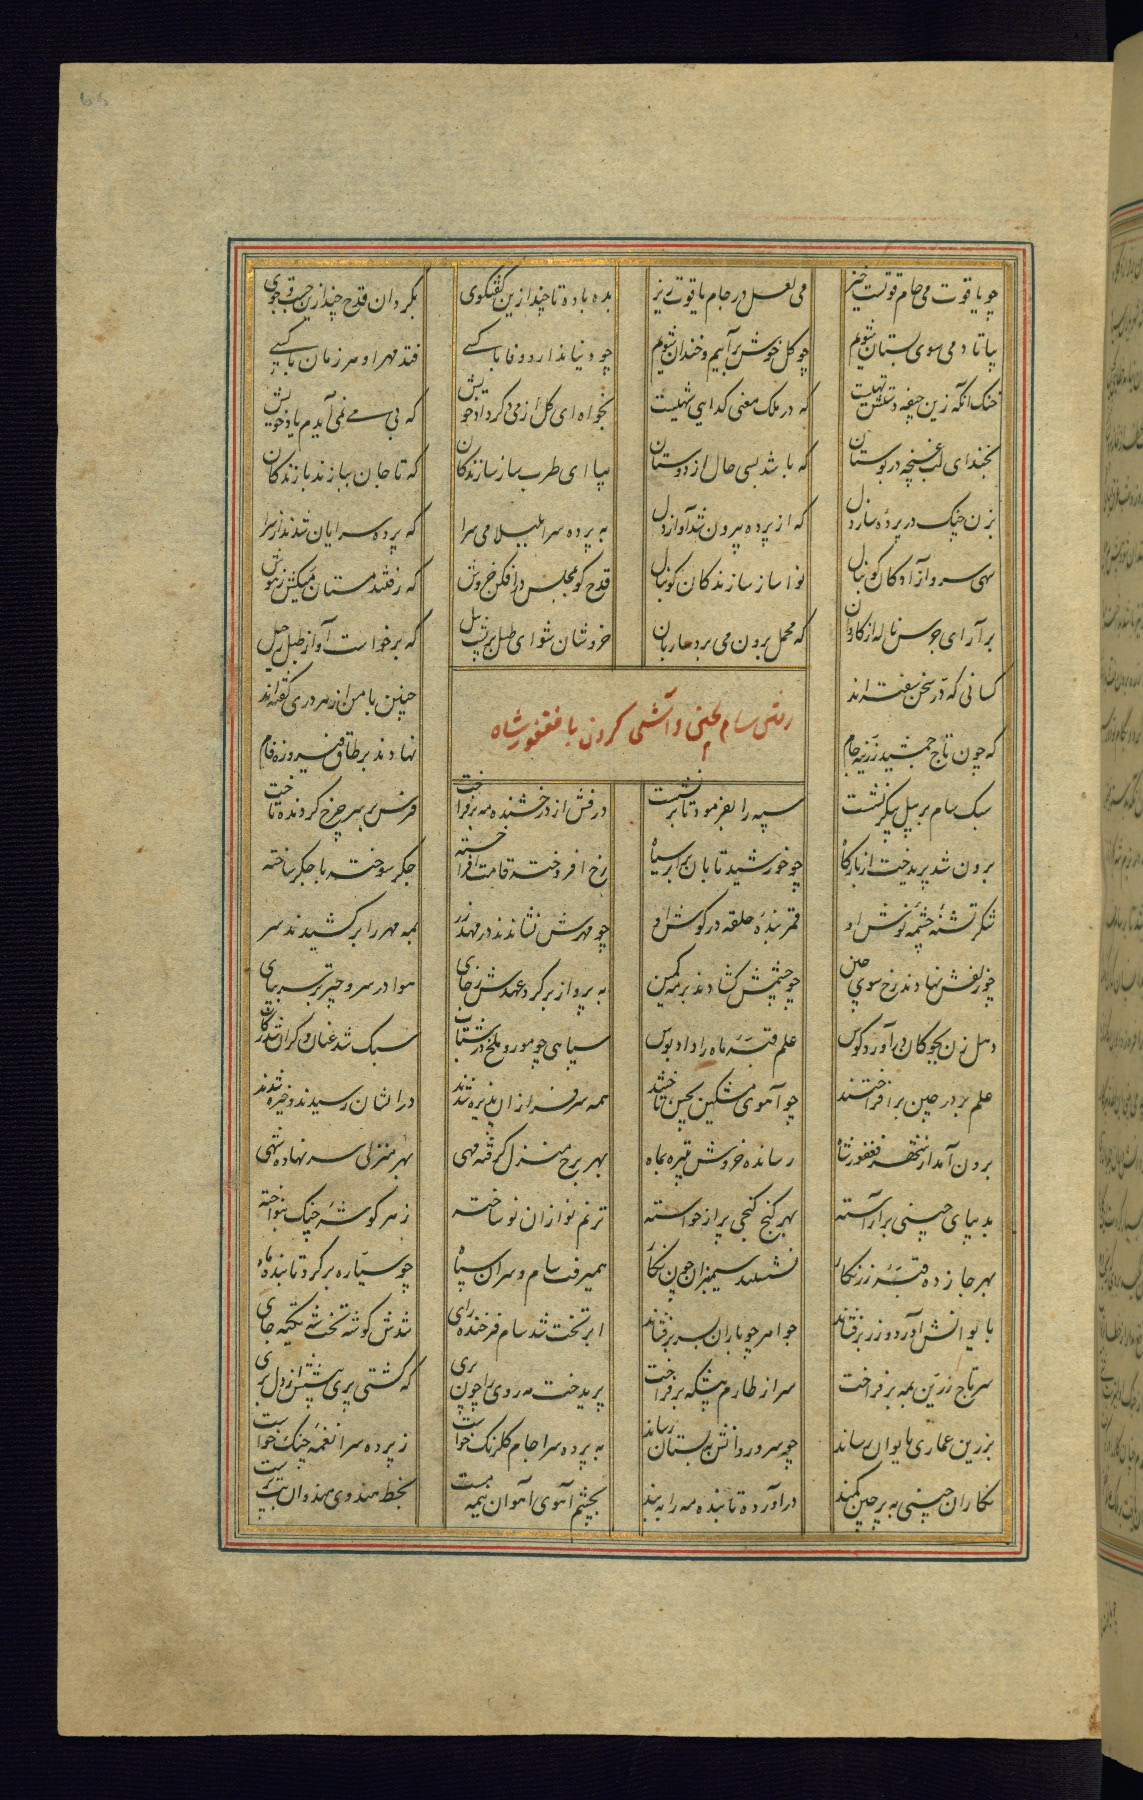 چو یاقوت می جام قوتست خیز می لعل در جام یاقوت ریز بده باده تا چند ازین گفتگوی بگردان قدح چند ازین جست و جوی
بیا تا دمی سوی بستان شویم چو گل خوش برآییم و خندان شویم چو دنیا ندارد وفا با کسی مهر او هر زمان با کسی
خنک آنکه زین جیفه دستش تهیست که در ملک معنی گدایی شهیست بخواه ای گل از می که که بی می نمی آیدم یاد خویش
بخند ای لب غنچه در بوستان که باشد بسی حال از دوستان بیا ای طرب ساز سازندگان که تا جان ببازند بازندگان
بزن چنگ در پرده ساز دل که از پرده بیرون شد آواز دل به پرده سرا بلبلا می سرا که پرده سرایان شدند از سرا
سهی سرو آزادگان کو بنال نوا ساز سازندگان کو بنال قدح کو بمجلس در افکن خروش که رفتند مستان ز هوش
برآر ای جرس ناله از کاروان که محمل برون می برد ساربان خروشان شو ای طبل بر پشت پیل که برخواست آواز طبل رحیل
کسانی که در سخن سفته اند چنین با من از هر دری گفته اند
رفتن سام بچین و آشتی کردن با فغفور شاه
که چون تاج جمشید زرینه جام نهادند بر طاق فیروزه فام
سبک سام بر پیل پیکر نشست سپه را بفرمود تا بر نشست درفش از درخشنده مه برفراخت فرس بر سپهر چرخ گردنده تاخت
برون شد پریدخت از بارگاه چو خورشید تابان ز ابر سیاه رخ افروخته قامت افراخته جگر سوخته با جگر ساخته
شکر تشنهٔ چشمه نوش او قمر بندهٔ حلقه در گوش او چو مهرش نشاندند در مهد زر بمه مهر را بر کشیدند سر
چو زلفش نهادند رخ سوی چین چو چشمش گشادند بر مه کمین به پرواز بر گرد مهدش ز جای هوادار سرو چتر بر سر بپای
دهل زن بچوگان درآورد کوس علم قبه ماه را داد بوس سپاهی چو مور و ملخ در شتاب سبک شد عنان و گران شد رکاب
علم بر در چین برافراختند چو آهوی مشکین بچین تاختند همه سرفرازان پذیره شدند در ایشان رسیدند و خیره شدند
برون آمد از شهر فغفور شاه رسانده خروش تبیره بماه بهر برج منزل گرفته مهی بهر منزلی سر نهاده شهی
بدیبای چینی برآراسته بهر کنج گنجی پر از خواسته ترنم نوازان نو ساخته ز هر گوشهٔ چنگ بنواخته
بهر جا زده قبهٔ زرنگار نشسته سمنبران چون نگار همیرفت سام و سران سپاه چو سیاره بر گرد تابنده ماه
بایوانش آورد و زر برفشاند جواهر چو باران بسر برفشاند ابر تخت شد سام فرخنده رای شدش گوشه تخت شه تکیه جای
سر تاج زرین بمه برفراخت سر از طارم برفراخت پریدخت مه روی را چون پری که گشتی پری پیشش از دل بری
بزرین عماری بایوان رساند چو سرو روانش ببستان رساند به پرده سرا جام گلرنگ خواست ز پرده سرا نغمهٔ چنگ خواست
نگاران چینی به پرچین کمند درآورده تابنده مه را به بند بچشم آهوی آهوان نیمه مست بخط هندوی هندوان بت پرست